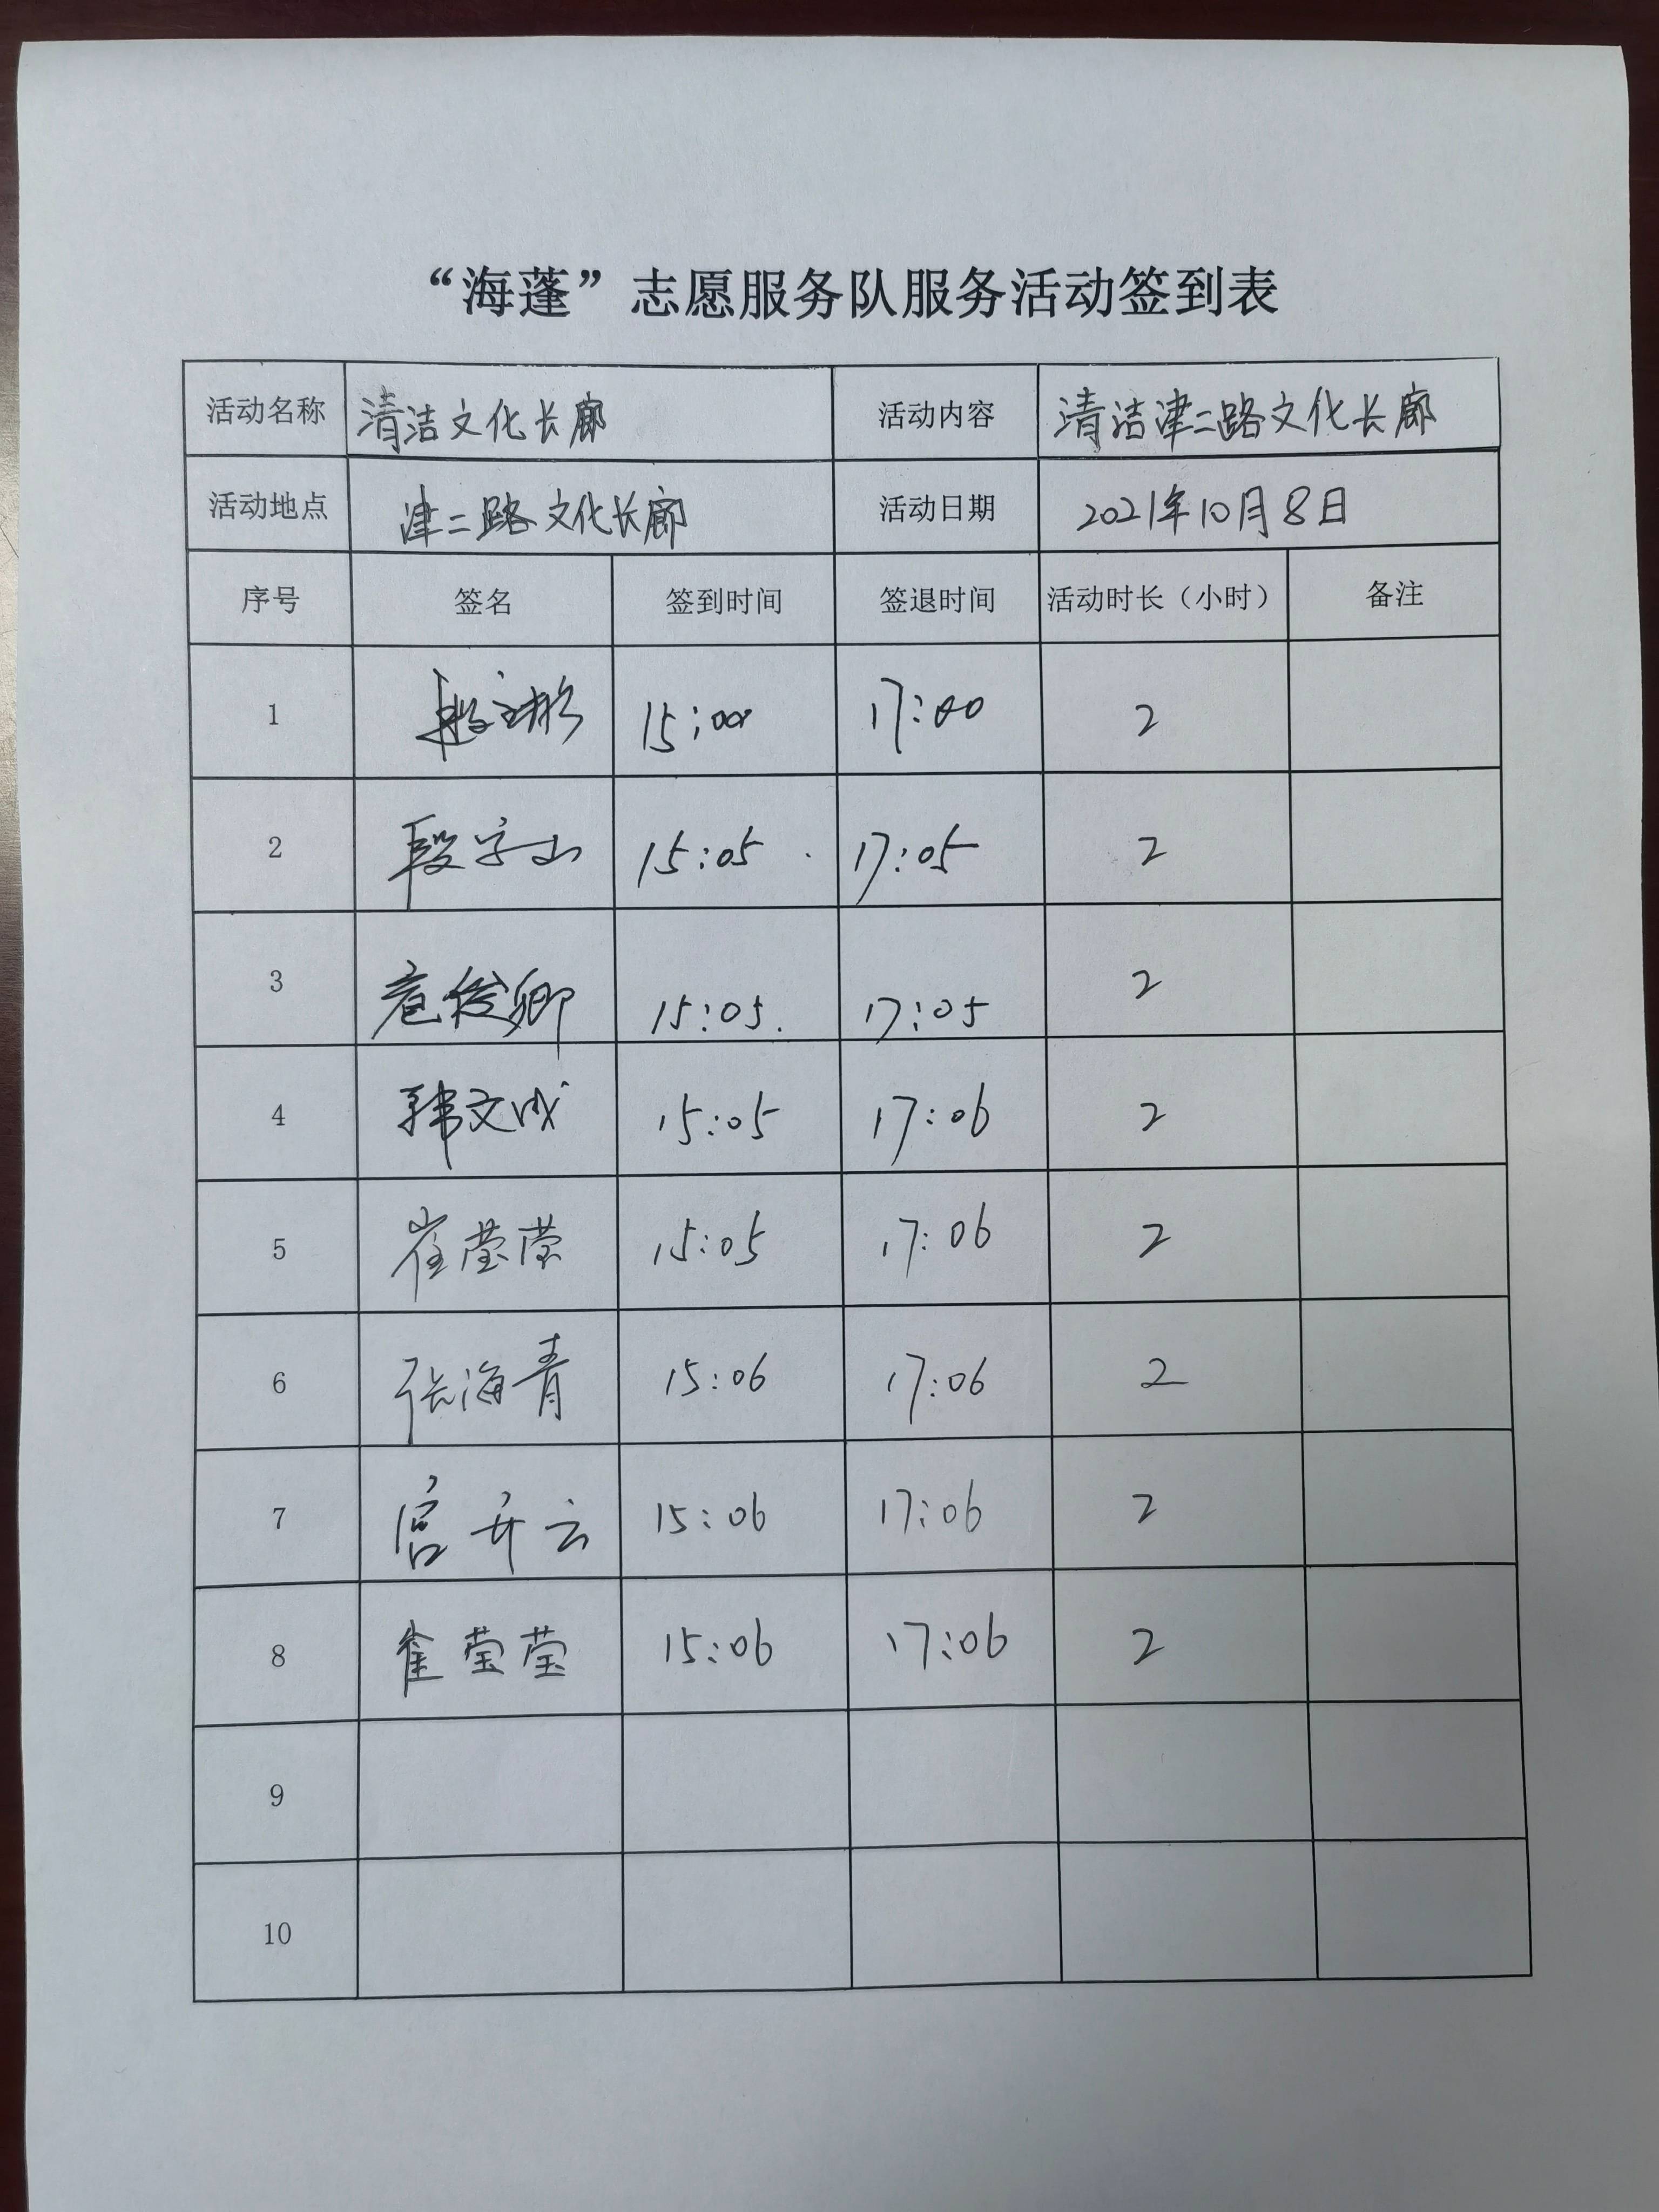 “海蓬”志愿服务队服务活动签到表
活动名称 清洁文化长廊 活动内容 清洁津二路文化长廊
活动地点 津二路文化长廊 活动日期 2021年10月8日
序号 签名 签到时间 签退时间 活动时长（小时） 备注
1 15:00 17:00 2
2 段字山 15:05 17:05 2
3 俊卿 15:05. 17:05 2
4 韩文成 15:05 17:06 2
5 崔莹莹 15:05 17:06 2
6 张海青 15:06 17:06 2
7 宫开云 15:06 17:06 2
8 崔莹莹 15:06 17:06 2
9
10